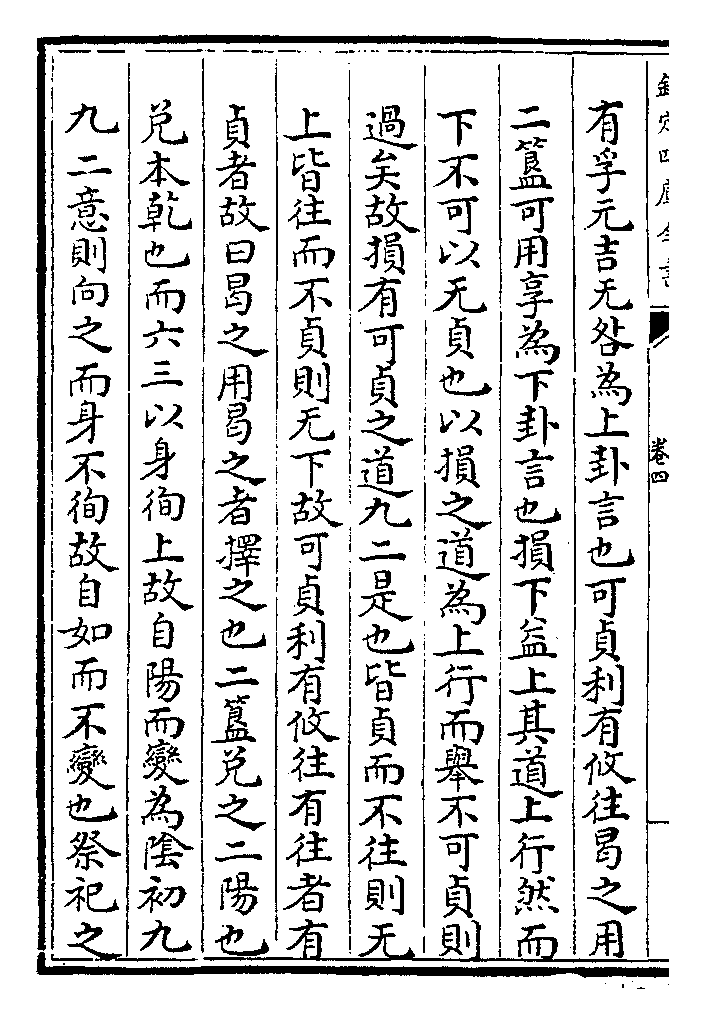 欽定四庫全書
卷四
有孚元吉无咎為上卦言也可貞利有攸往曷之用
二簋可用享為下卦言也損下益上其道上行然而
下不可以无貞也以損之道為上行而舉不可貞則
過矣故損有可貞之道九二是也皆貞而不往則无
上皆往而不貞則无下故可貞利有攸往有往者有
貞者故曰曷之用曷之者擇之也二簋兌之二陽也
兌本乾也而六三以身徇上故自陽而變為陰初九
九二意則向之而身不徇故自如而不變也祭祀之